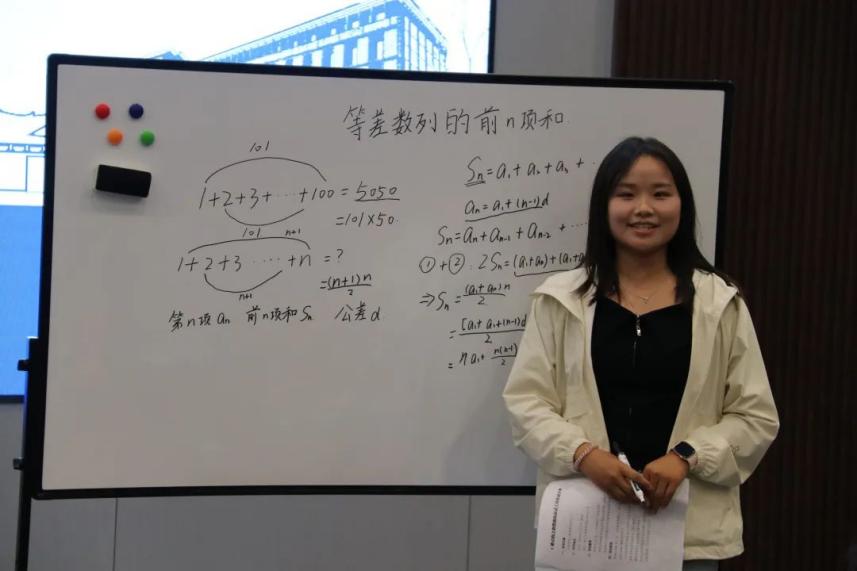 等差数列的前n项和.
101
1+2+3+……+100=5050
=101×50.
101
n+1
1+2+3……+n=?
n+1
=(n+1)n/2
第n项an 前n项和Sn 公差d
Sn=a₁+a₂+a₃+…
an=a₁+(n-1)d
Sn=an+an-1+an-2+…
①+②:2Sn=(a₁+an)+(a₁+a
⇒Sn=(a₁+an)n/2
=[a₁+a₁+(n-1)d/2
=na₁+n(n-1)/2